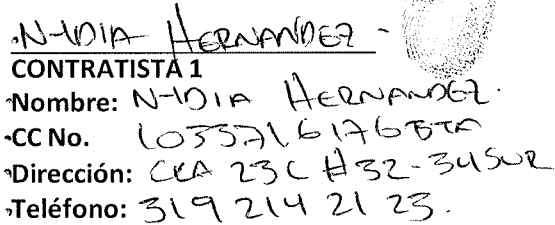 NIDIA HERNANDEZ -
CONTRATISTA 1
Nombre: NIDIA HERNANDEZ.
CC No. 1033716176 BTA
Dirección: CRA 23 C #32-34 SUR
Teléfono: 319 214 21 23.